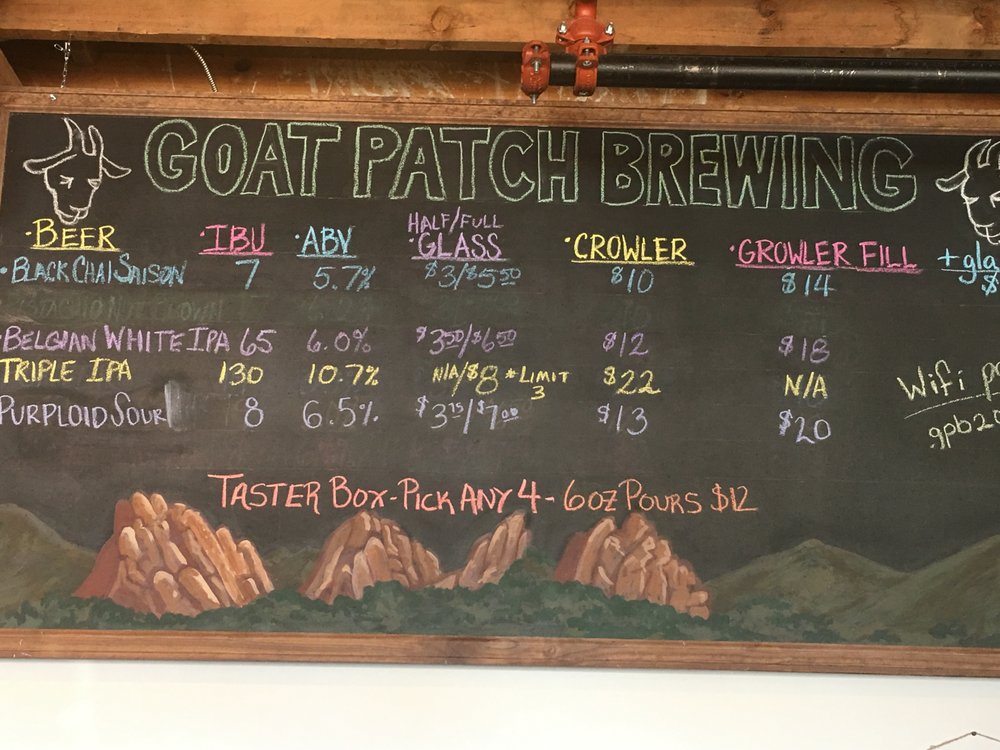 GOAT PATCH BREWING
HALF/FULL
·BEER ·IBU ·ABV ·GLASS ·CROWLER ·GROWLER FILL + gla
·BLACK CHAI SAISON 7 5.7% $3/$5.50 $10 $14 $
·BELGIAN WHITE IPA 65 6.0% $3.50/$6.50 $12 $18
TRIPLE IPA 130 10.7% N/A/$8 *LIMIT 3 $22 N/A
PURPLOID SOUR 8 6.5% $3.75/$7.00 $13 $20
Wifi p
gpb20
TASTER BOX-PICK ANY 4 - 6oz POURS $12